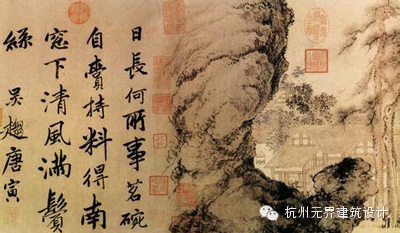 日長何所事茗碗
自賫持料得南
窓下清風滿鬢
絲 吳趨唐寅
杭州元界建筑设计